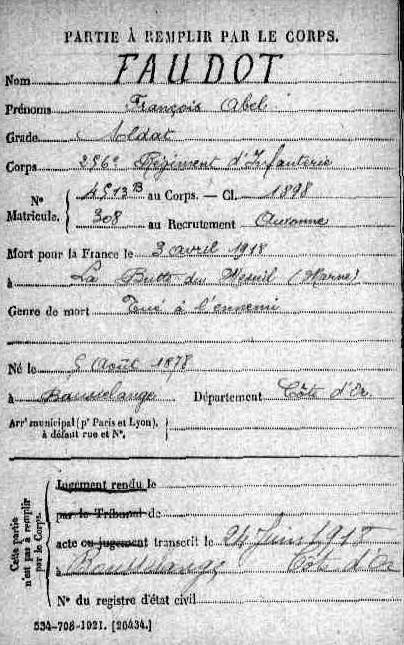 PARTIE À REMPLIR PAR LE CORPS.
Nom FAUDOT
Prénoms François Abel
Grade Soldat
Corps 256e Régiment d'Infanterie
N° Matricule. 4513 B au Corps. — Cl. 1898
308 au Recrutement Auxonne
Mort pour la France le 3 avril 1918
à La Butte du Mesnil (Marne)
Genre de mort Tué à l'ennemi
Né le 5 Août 1878
à Bousselange Département Côte d'Or
Arrt municipal (pr Paris et Lyon), à défaut rue et N°.
Cette partie n'est pas à remplir par le Corps.
Jugement rendu le
par le Tribunal de
acte ou jugement transcrit le 24 Juin 1918
à Bousselange Côte d'Or
N° du registre d'état civil
534-708-1921. [26434.]